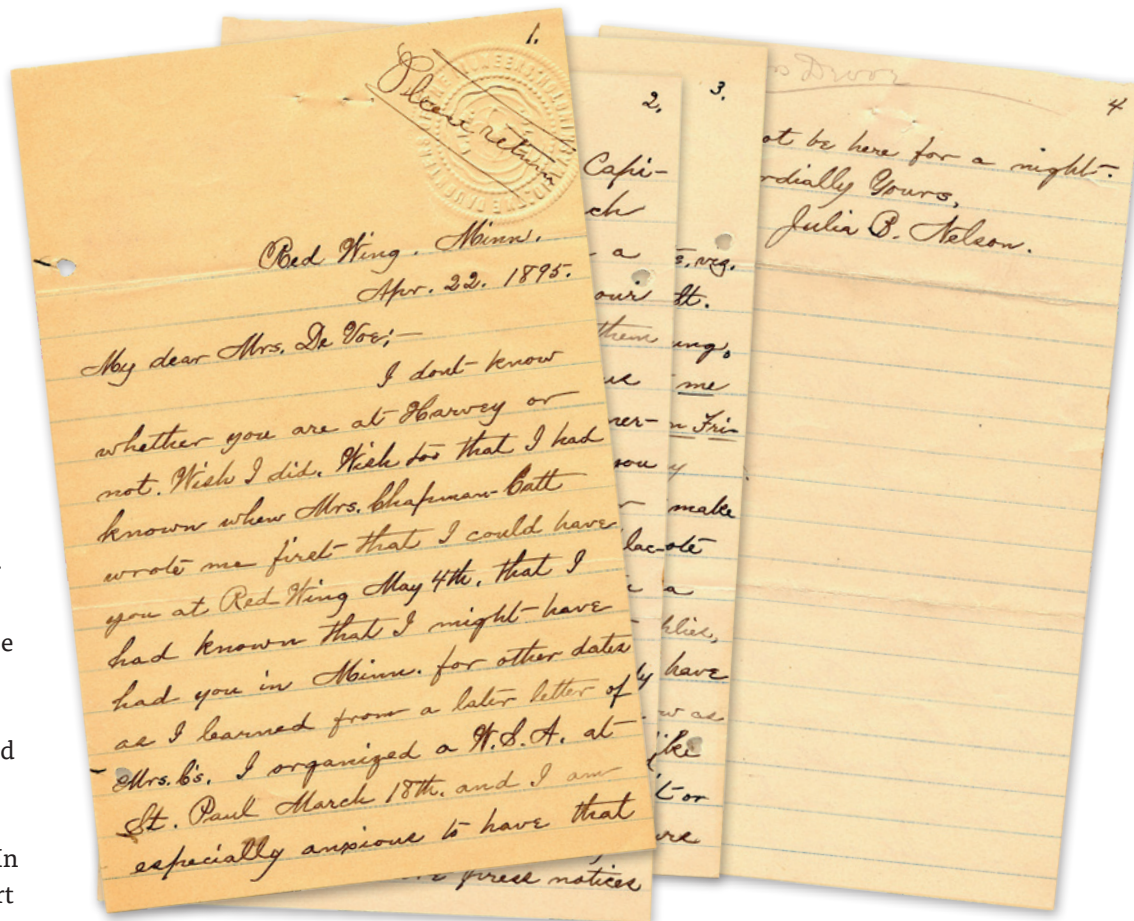 1.
Please return
Red Wing. Minn.
Apr. 22. 1895.
My dear Mrs. De Voe;—
I dont know
whether you are at Harvey or
not. Wish I did. Wish too that I had
known when Mrs. Chapman-Catt
wrote me first that I could have
you at Red Wing May 4th, that I
had known that I might have
had you in Minn. for other dates
as I learned from a later letter of
Mrs. C's. I organized a W.S.A. at
St. Paul March 18th. and I am
especially anxious to have that
2.
Capi-
ch
a
our
them
us
ner-
you
a
press notices
3.
ung,
me
n Fri-
y
make
ote
blies,
have
w as
like
t or
ure
4
ot be here for a night.
rdially Yours,
Julia B. Nelson.
e
d
In
rt